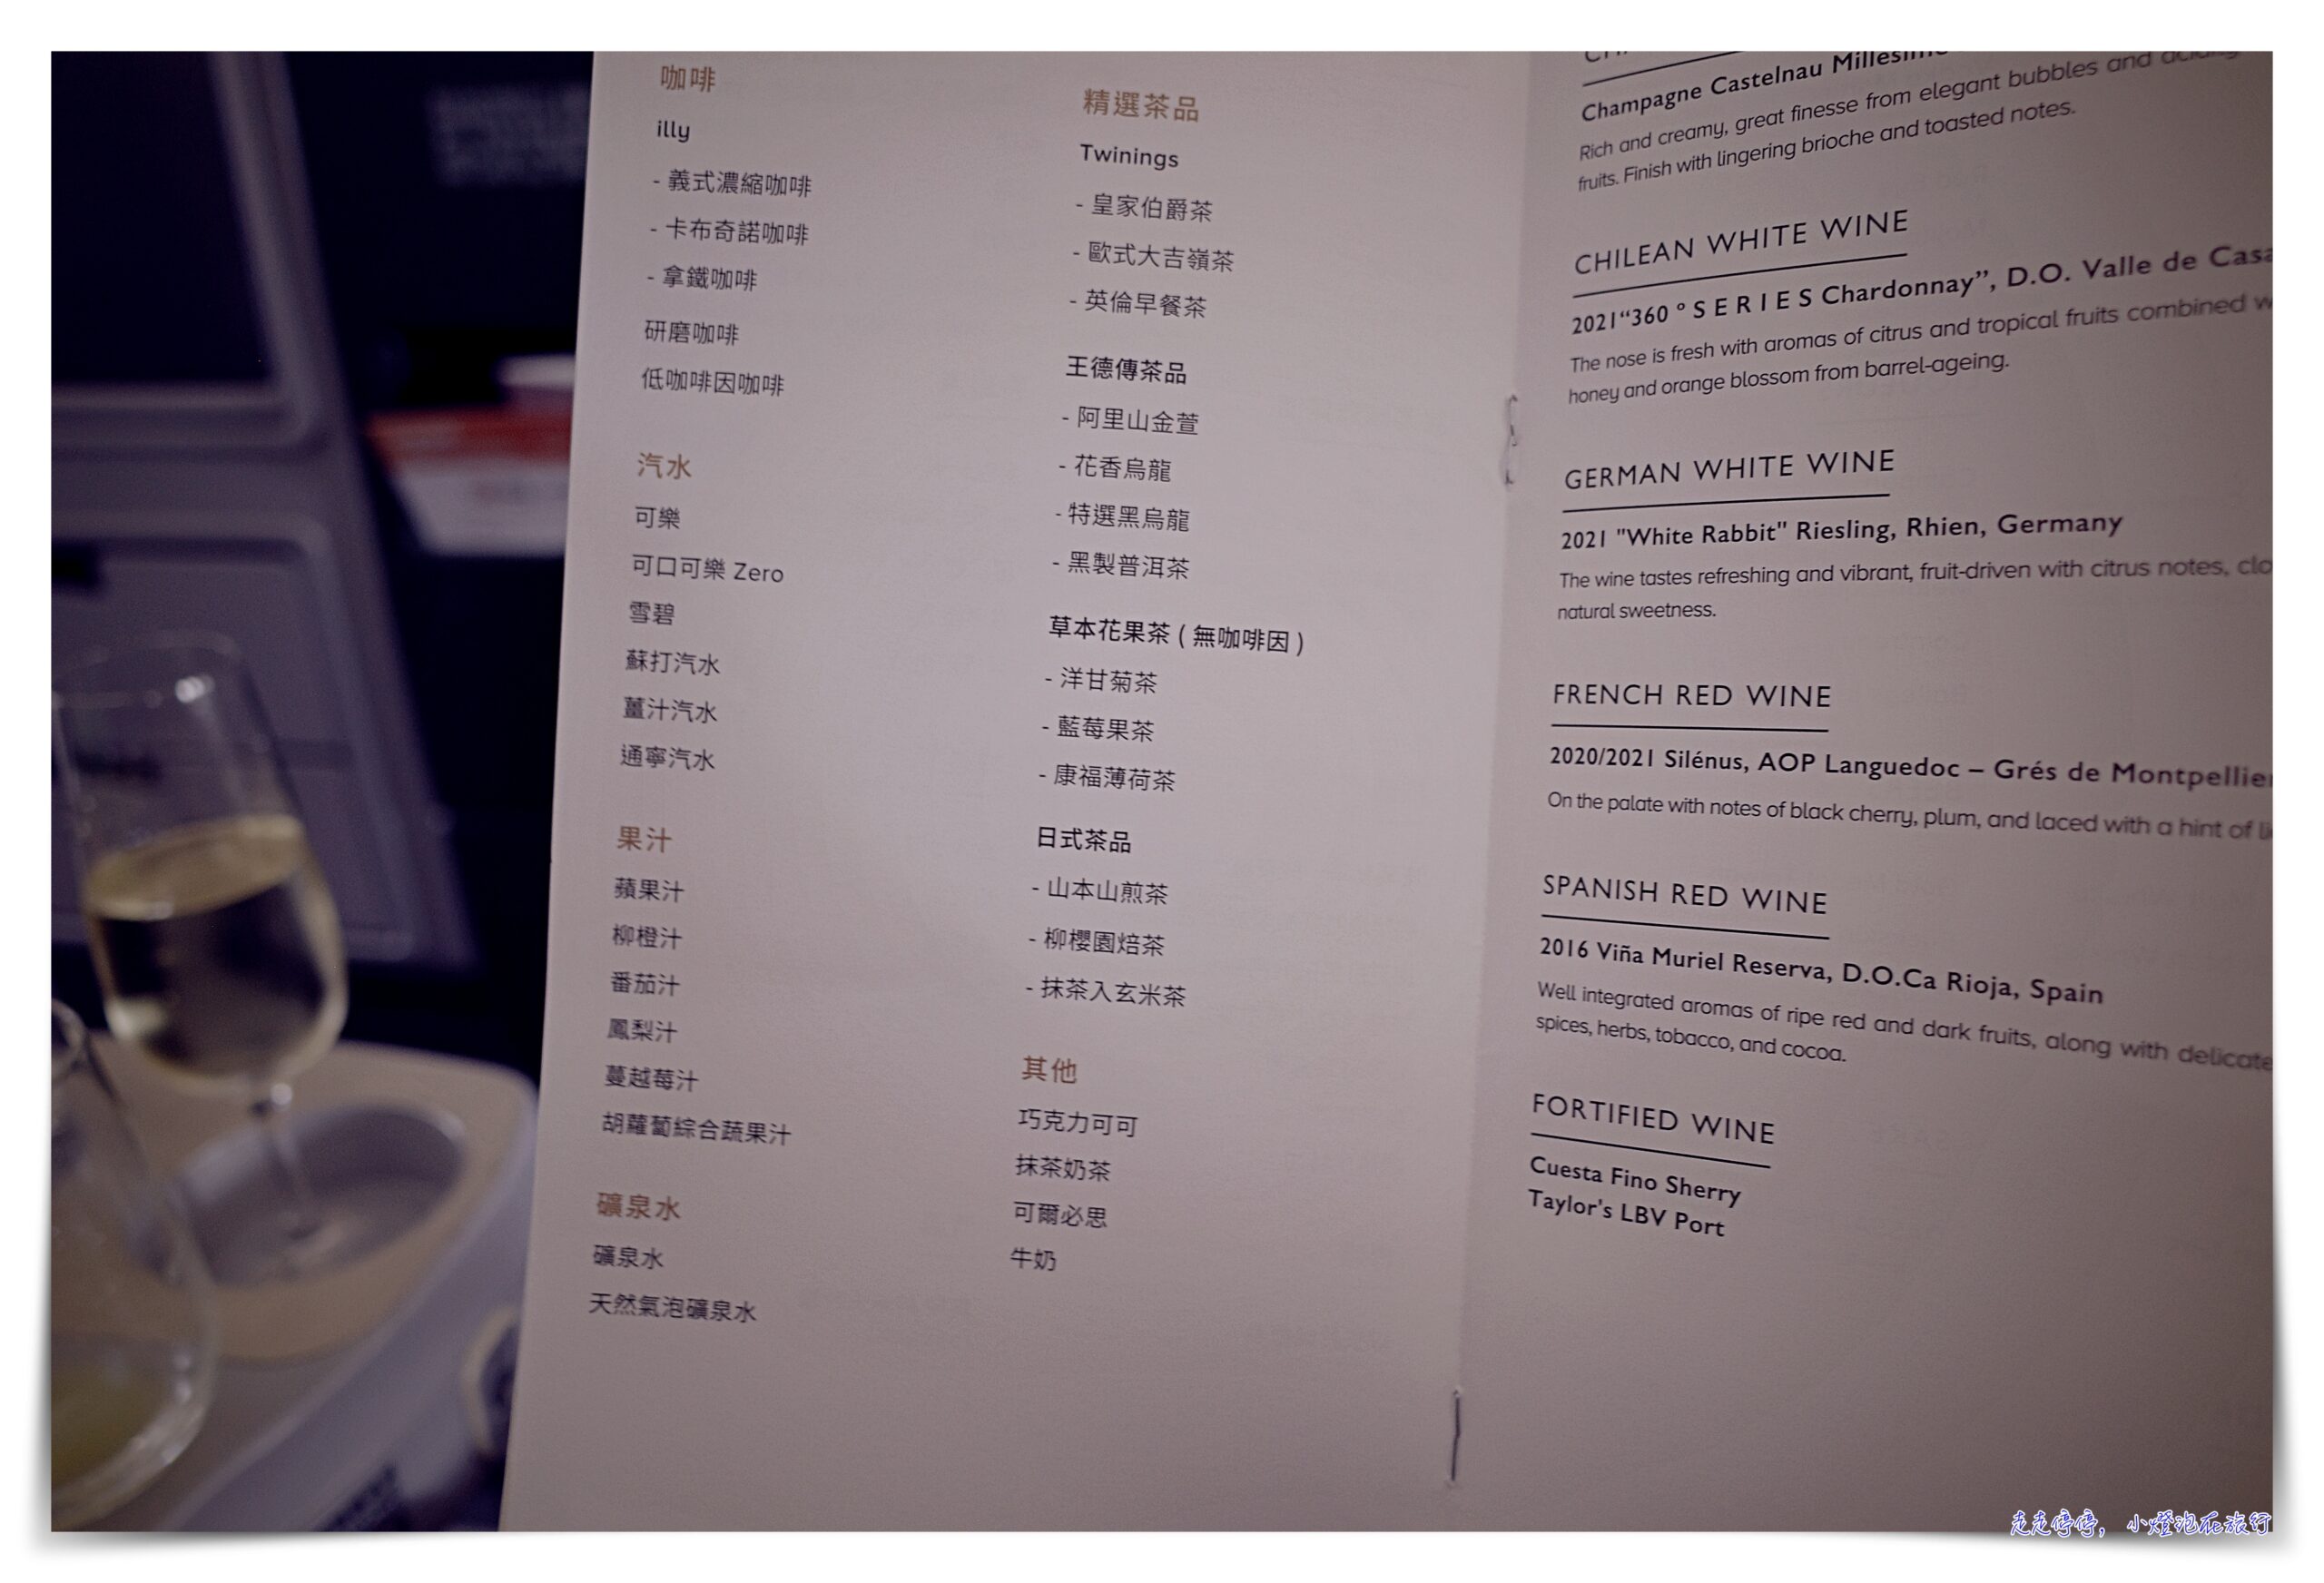 咖啡
illy
- 義式濃縮咖啡
- 卡布奇諾咖啡
- 拿鐵咖啡
研磨咖啡
低咖啡因咖啡
汽水
可樂
可口可樂 Zero
雪碧
蘇打汽水
薑汁汽水
通寧汽水
果汁
蘋果汁
柳橙汁
番茄汁
鳳梨汁
蔓越莓汁
胡蘿蔔綜合蔬果汁
礦泉水
礦泉水
天然氣泡礦泉水
精選茶品
Twinings
- 皇家伯爵茶
- 歐式大吉嶺茶
- 英倫早餐茶
王德傳茶品
- 阿里山金萱
- 花香烏龍
- 特選黑烏龍
- 黑製普洱茶
草本花果茶 ( 無咖啡因 )
- 洋甘菊茶
- 藍莓果茶
- 康福薄荷茶
日式茶品
- 山本山煎茶
- 柳櫻園焙茶
- 抹茶入玄米茶
其他
巧克力可可
抹茶奶茶
可爾必思
牛奶
Champagne Castelnau
Rich and creamy, great finesse from elegant bubbles and
fruits. Finish with lingering brioche and toasted notes.
CHILEAN WHITE WINE
2021“360 ° S E R I E S Chardonnay”, D.O. Valle de
The nose is fresh with aromas of citrus and tropical fruits combined
honey and orange blossom from barrel-ageing.
GERMAN WHITE WINE
2021 "White Rabbit" Riesling, Rhien, Germany
The wine tastes refreshing and vibrant, fruit-driven with citrus notes,
natural sweetness.
FRENCH RED WINE
2020/2021 Silénus, AOP Languedoc – Grés de Montpellier
On the palate with notes of black cherry, plum, and laced with a hint of
SPANISH RED WINE
2016 Viña Muriel Reserva, D.O.Ca Rioja, Spain
Well integrated aromas of ripe red and dark fruits, along with delicate
spices, herbs, tobacco, and cocoa.
FORTIFIED WINE
Cuesta Fino Sherry
Taylor's LBV Port
走走停停，小燈泡在旅行